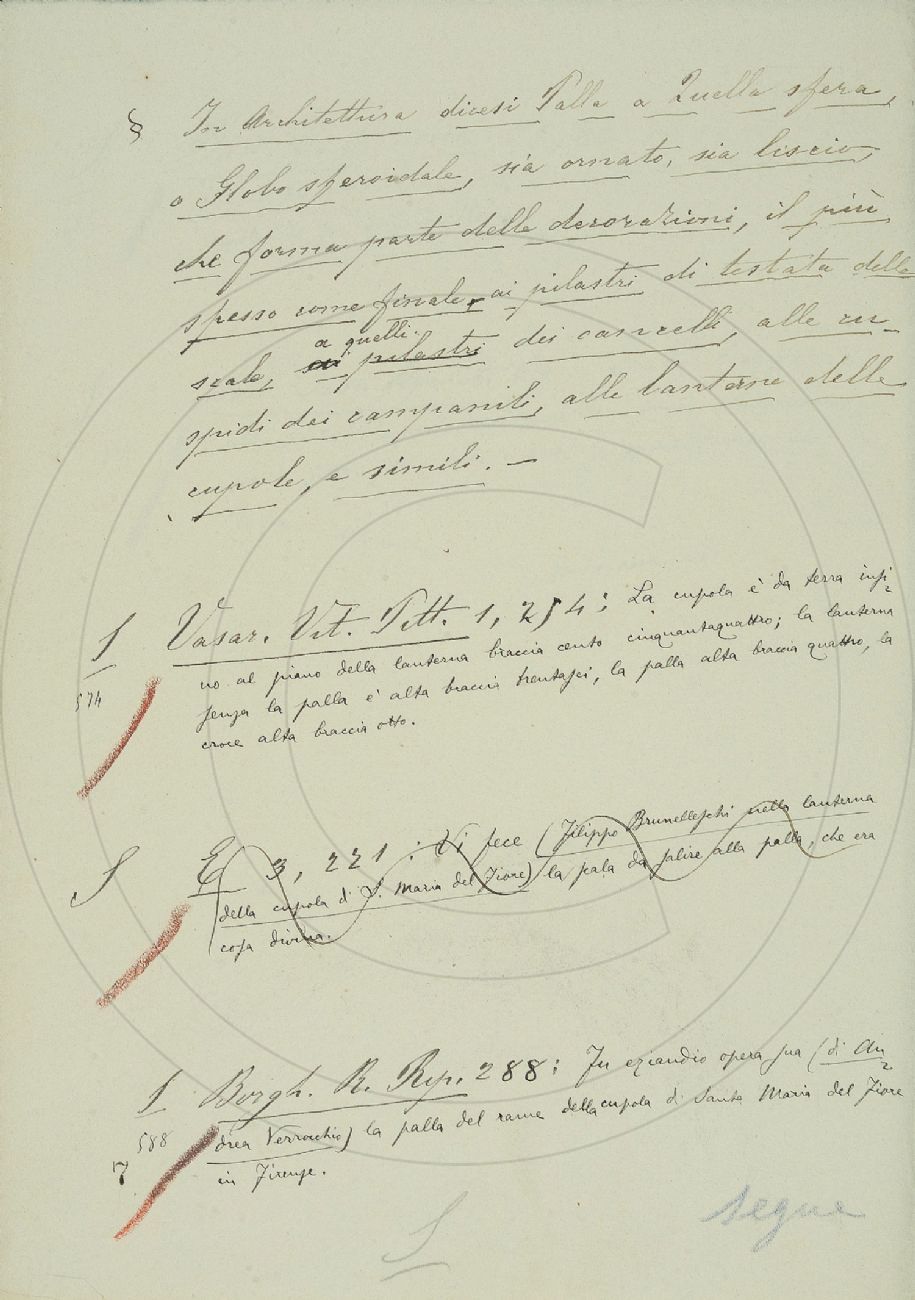 § In Architettura dicesi Palla a Quella sfera,
o Globo sferoidale, sia ornato, sia liscio,
che forma parte delle decorazioni, il più
spesso come finale, ai pilastri di testata delle
a quelli
scale, ai pilastri dei cancelli, alle cu-
spidi dei campanili, alle lanterne delle
cupole, e simili. —
S Vasar. Vit. Pitt. 1, 254: La cupola è da terra infi-
574 no al piano della lanterna braccia cento cinquantaquattro; la lanterna
senza la palla è alta braccia trentasei, la palla alta braccia quattro, la
croce alta braccia otto.
S E 3, 221: Vi fece (Filippo Brunelleschi nella lanterna
della cupola di S. Maria del Fiore) la scala da salire alla palla, che era
cosa divina.
S Borgh. R. Rip. 288: Fu eziandio opera sua (di An-
588 drea Verrocchio) la palla del rame della cupola di Santa Maria del Fiore
7 in Firenze.
S
segue